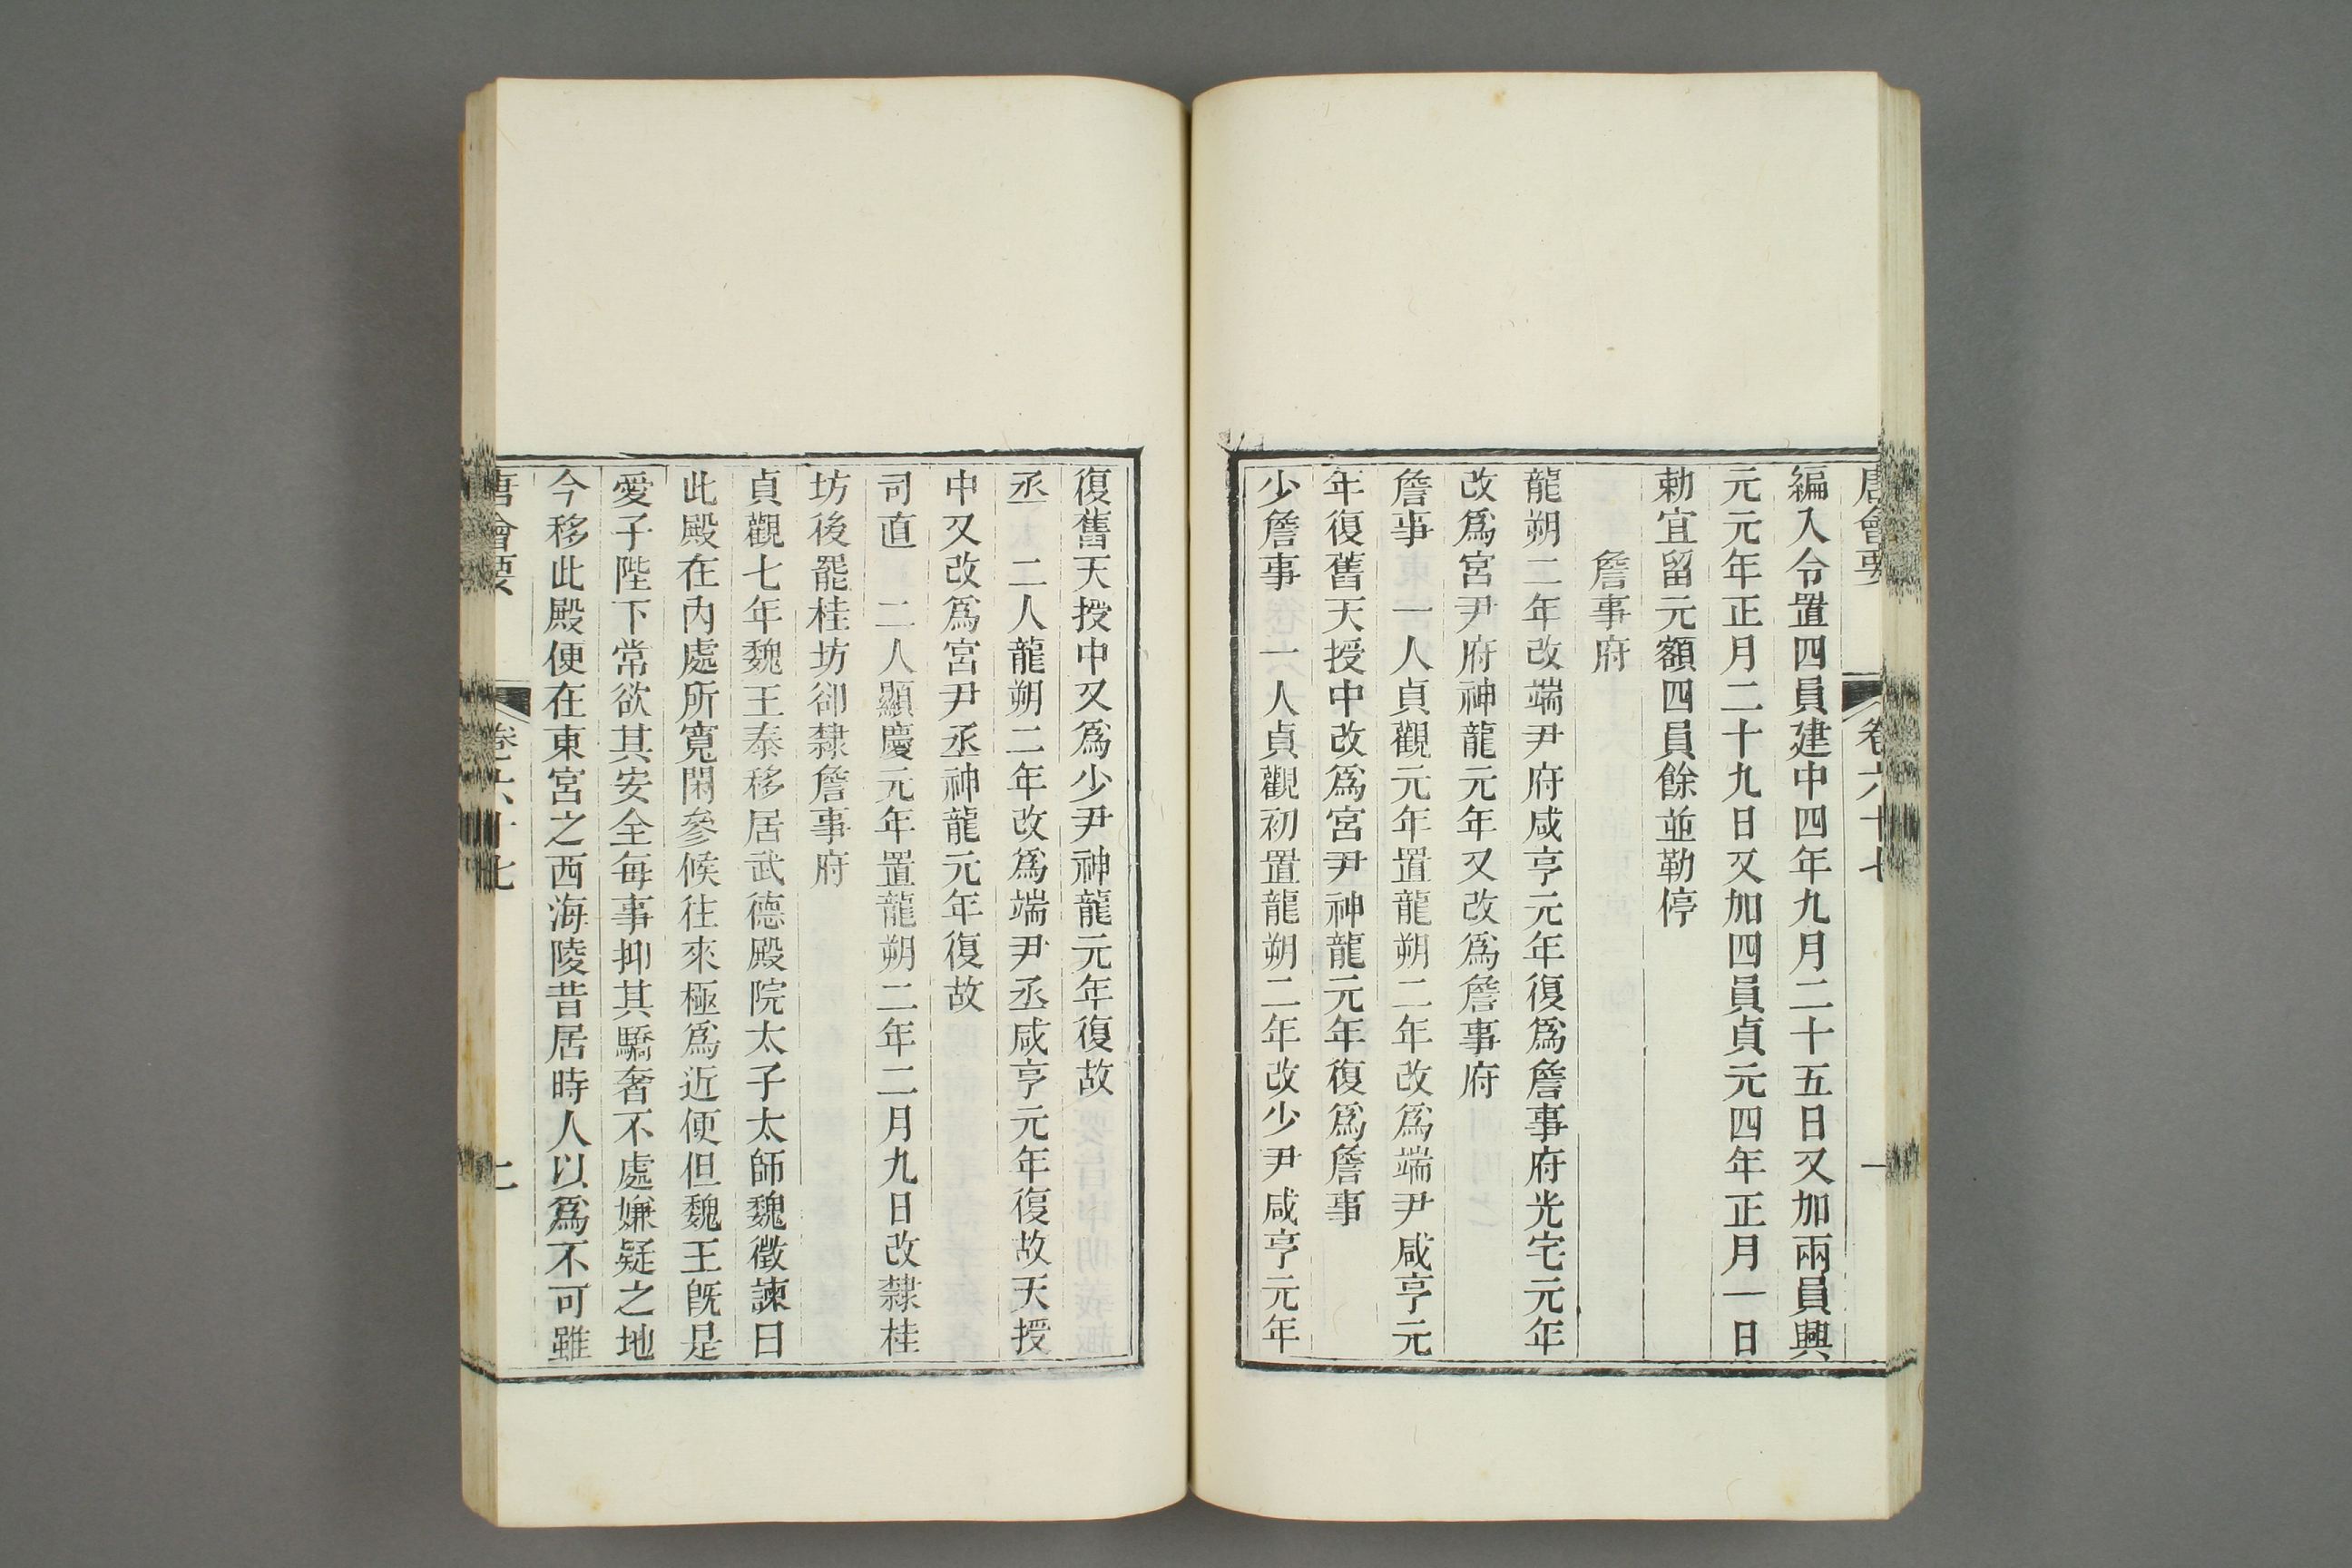 唐會要 卷六十七 一
編入令置四員建中四年九月二十五日又加兩員興
元元年正月二十九日又加四員貞元四年正月一日
勅宜留元額四員餘並勒停
詹事府
龍朔二年改端尹府咸亨元年復爲詹事府光宅元年
改爲宮尹府神龍元年又改爲詹事府
詹事 一人貞觀元年置龍朔二年改爲端尹咸亨元
年復舊天授中改爲宮尹神龍元年復爲詹事
少詹事 一人貞觀初置龍朔二年改少尹咸亨元年
復舊天授中又爲少尹神龍元年復故
丞 二人龍朔二年改爲端尹丞咸亨元年復故天授
中又改爲宮尹丞神龍元年復故
司直 二人顯慶元年置龍朔二年二月九日改隸桂
坊後罷桂坊卻隸詹事府
貞觀七年魏王泰移居武德殿院太子太師魏徵諫曰
此殿在內處所寬閑參候往來極爲近便但魏王旣是
愛子陛下常欲其安全每事抑其驕奢不處嫌疑之地
今移此殿便在東宮之西海陵昔居時人以爲不可雖
唐會要 卷六十七 二